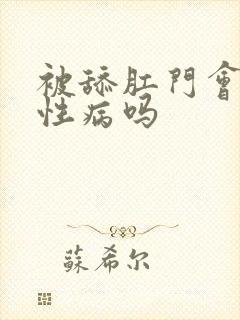 被舔肛門會
性病吗
蘇希尔